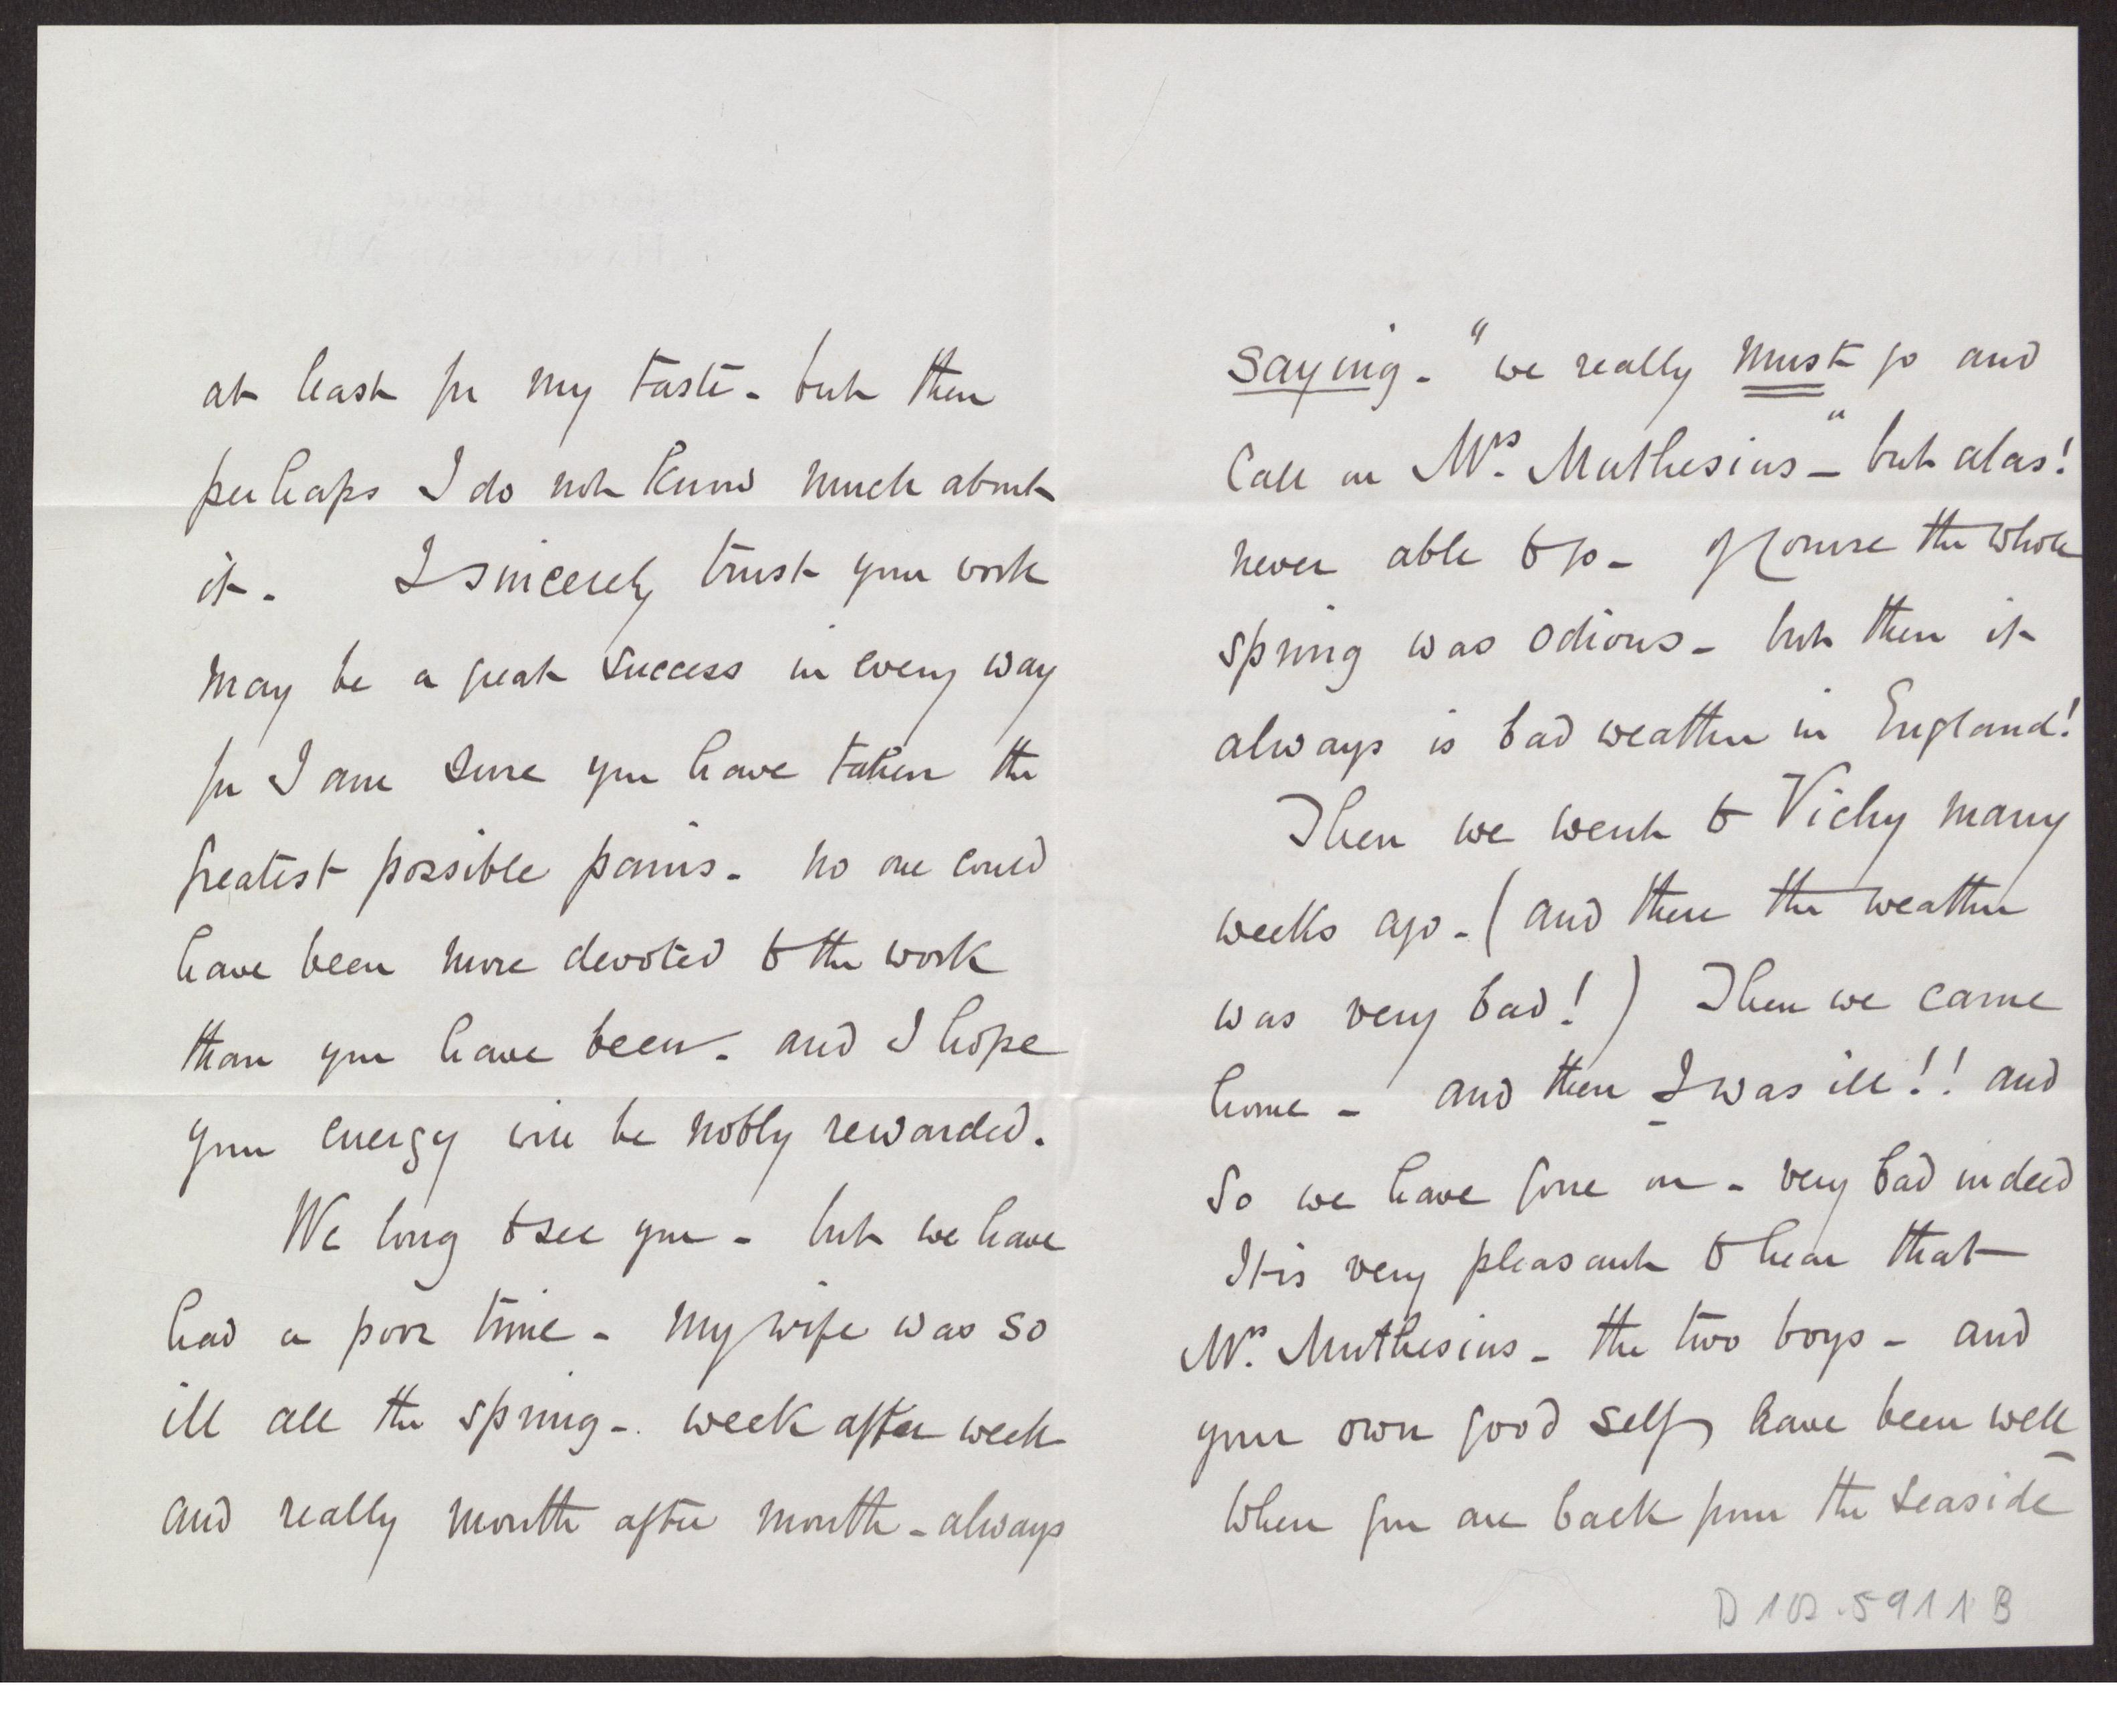 at least for my taste - but then
perhaps I do not know much about
it - I sincerely trust your work
may be a great success in every way
for I am sure you have taken the
greatest possible pains - no one could
have been more devoted to the work
than you have been - and I hope
your energy will be nobly rewarded.
We long to see you - but we have
had a poor time - My wife was so
ill all the spring - week after week
and really month after month - always
saying - "we really must go and
call on Mrs. Muthesius" - but alas!
never able to go - of course the whole
spring was odious - but then it
always is bad weather in England!
Then we went to Vichy many
weeks ago - (and there the weather
was very bad!) Then we came
home - and then I was ill!! and
so we have gone on - very bad indeed
It is very pleasant to hear that
Mrs. Muthesius - the two boys - and
your own good self, have been well -
When you are back from the seaside
D 102-5911 B